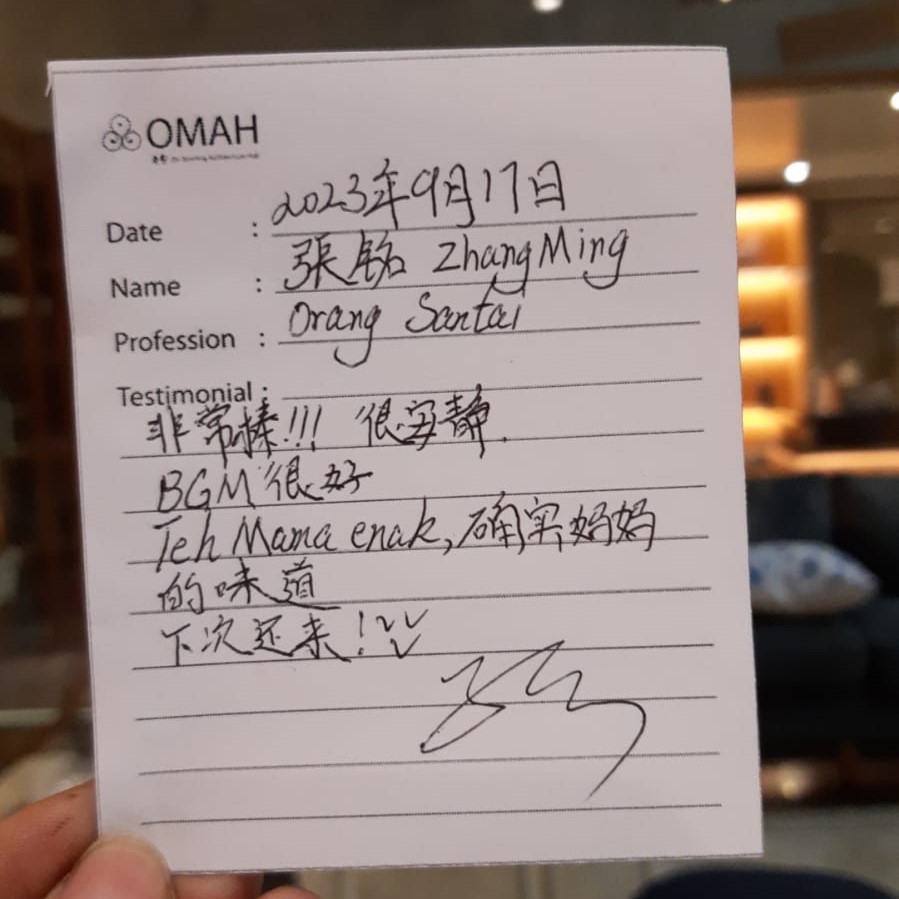 OMAH
Date : 2023年9月17日
Name : 張铭 Zhang Ming
Profession : Orang Santai
Testimonial :
非常棒!!! 很安静.
BGM 很好
Teh Mama enak, 确实妈妈
的味道
下次还来!